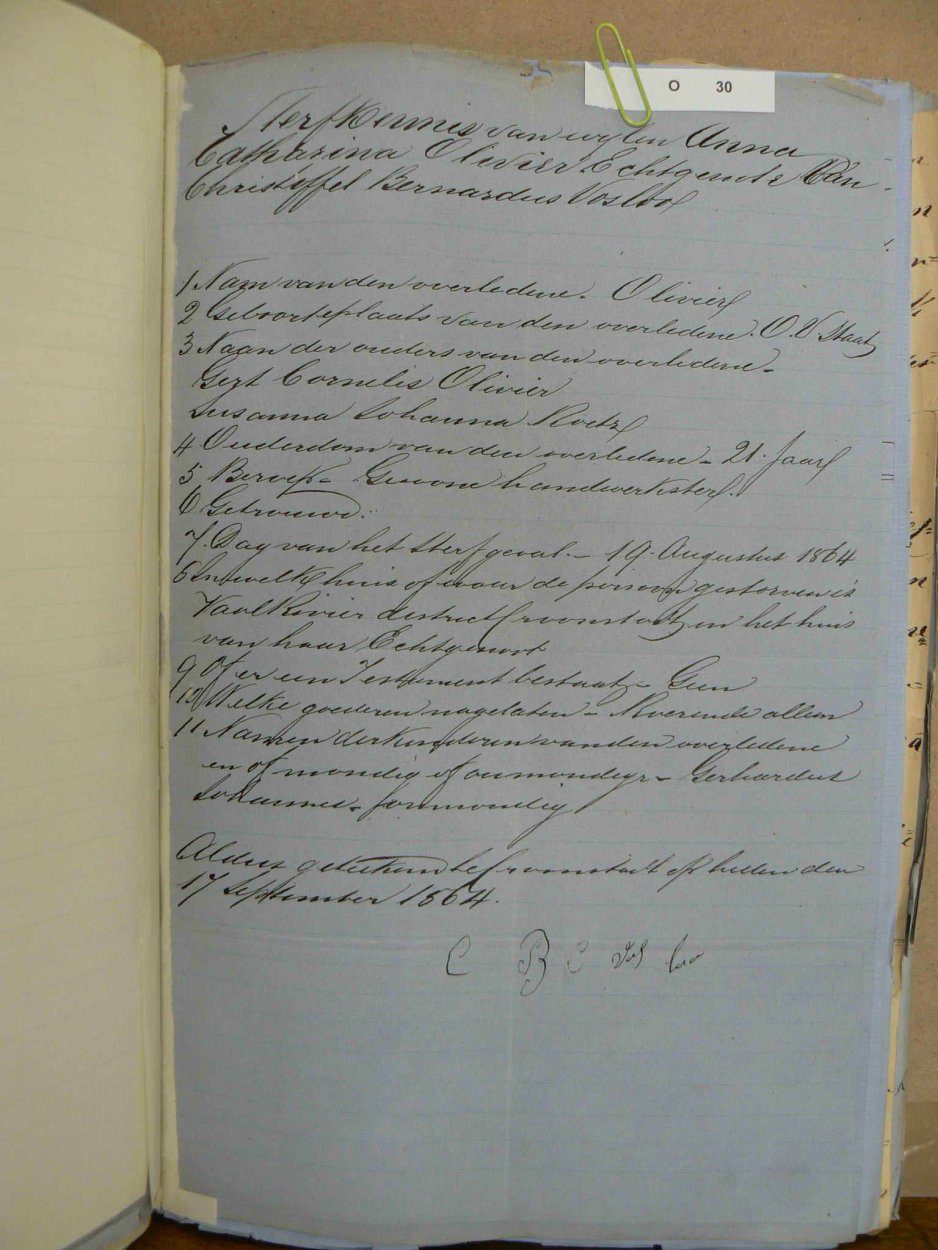 O 30
Sterfkennis van wylen Anna
Catharina Olivier Echtgenote van
Christoffel Bernardus Vosloo
1 Nam van den overledene. Olivier
2 Geboorteplaats van den overledene. O. V. Staat
3 Naan der ouders van den overledene -
Gert Cornelis Olivier
Susanna Johanna
4 Ouderdom van den overledene - 21. Jaar
5 Beroep - Gewone handwerkster.
6 Getrouwd.
7. Dag van het Sterfgeval. - 19. Augustus 1864
8 In welk huis of waar de persoon gestorven is
Vaal Rivier destrict Croonstadt in het huis
van haar Echtgenoot
9 Of er een Testement bestaat - Geen
10 Welke goederen nagelaten - Roerende alleen
11 Namen der kinderen van den overledene
en of mondig of onmondig - Gerhardus
Johannes - Onmondig
Aldus getekend te Croonstadt op heden den
17 September 1864.
C B C Vos loo